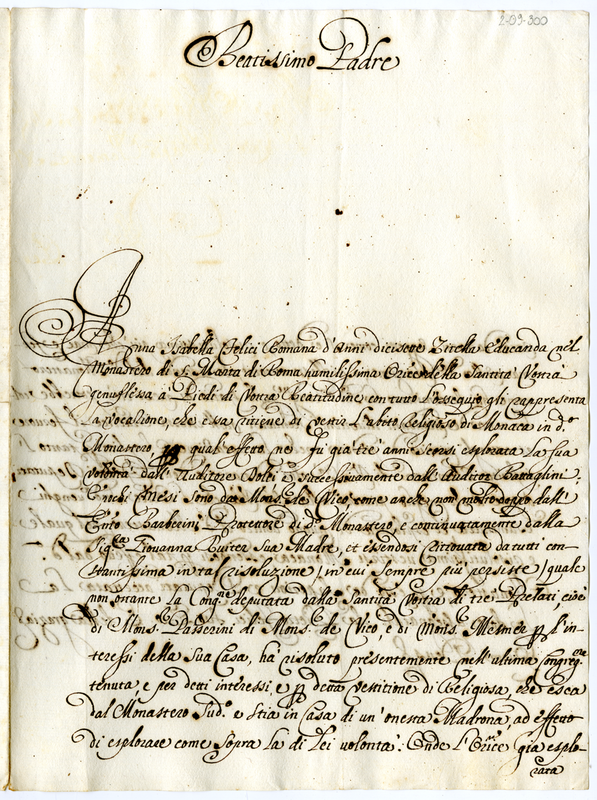 2-09-300
Beatissimo Padre
Anna Isabella Felici Romana d'Anni dicisette Zitella educanda nel
Monastero di S. Marta di Roma humilissima Orice della Santità Vostra
genuflessa à Piedi di Vostra Beatitudine con tutto l'ossequio gli rappresenta
la vocazione, che essa ritiene di vestir l'abito Religioso di Monaca in do
Monastero, qual effetto ne fu già tre anni scorsi esplorata la sua
volontà dall'Auditore Dolci e successivamente dall'Auditor Battaglini
e pochi Mesi sono da Mons. de Vico come anche non molto doppo dall'
Emo Barberini Protettore di do Monastero, e continuatamente dalla
Sigra Giovanna Ruiter sua Madre, et essendosi ritrovata da tutti con-
stantissima in tal risoluzione, in cui sempre più persiste, quale
non ostante la Congne deputata dalla Santità Vostra di tre Prelati, cioè
di Mons. Passerini di Mons. de Vico, e di Mons. Mesmer p l'in-
teressi della sua Casa, hà risoluto presentemente nell'ultima Congregne
tenuta, e per detti interessi e p detta vestitione di Religiosa, che esca
dal Monastero Sudo e stia in Casa di un'onesta Madrona, ad effetto
di esplorare come sopra la di Lei volontà: Onde l'Orice già esplo-
rata